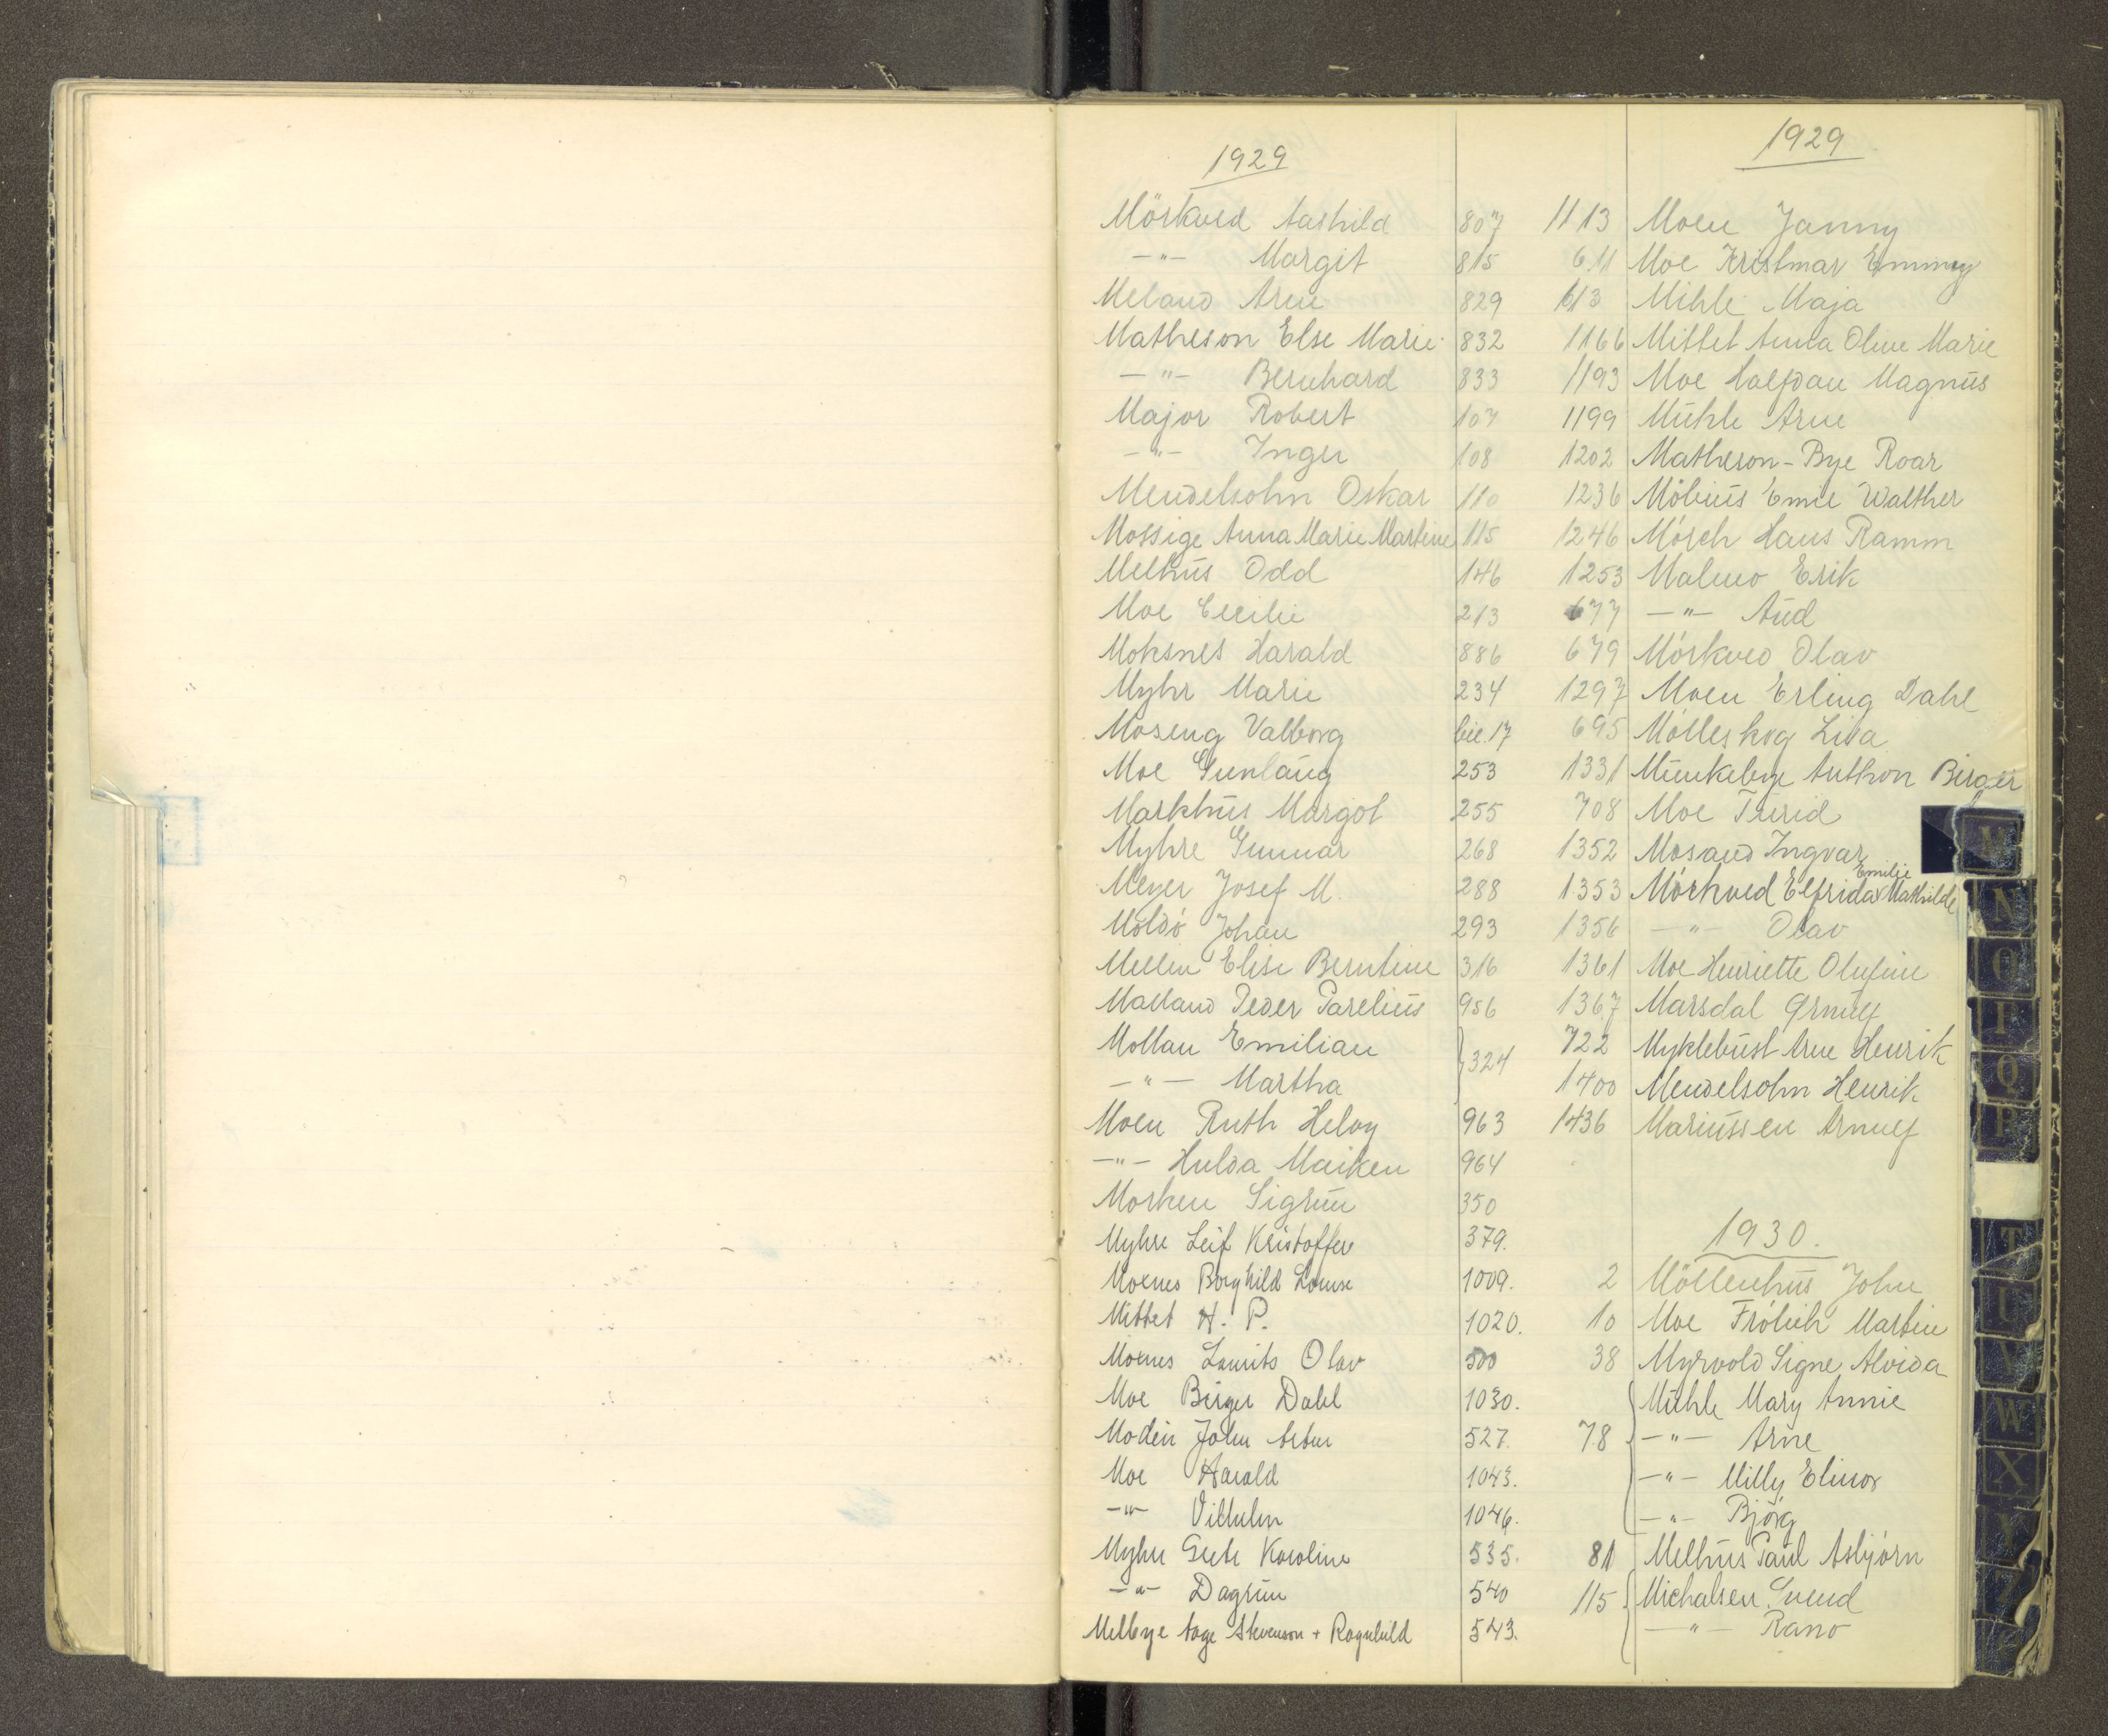 1929
Mörkved Aashild 807
—"— Margit 815
Meland Arne 829
Matheson Else Marie 832
—"— Bernhard 833
Major Robert 107
—"— Inger 108
Mendelsohn Oskar 110
Mossige Anna Marie Martine 115
Melhus Odd 146
Moe Cecilie 213
Moksnes Harald 886
Myhr Marie 234
Moseng Valborg 17
Moe Gunlaug 253
Markhus Margot 255
Myhre Gunnar 268
Meyer Josef M. 288
Moldö Johan 293
Mellin Elise Berntine 316
Malland Peder Parelius 956
Mollan Emilian } 324
—"— Martha
Moen Ruth Heloy 963
—"— Hulda Maiken 964
Morken Sigrun 350
Myhre Leif Kristoffer 379.
Moenes Borghild Louise 1009.
Mittet H. P. 1020.
Moenes Lauritz Olav 500
Moe Birger Dahl 1030.
Modin John Artur 527.
Moe Harald 1043.
—"— Vilhelm 1046.
Myhre Grete Karoline 535.
—"— Dagrun 540
Melbye Aage Stevenson + Ragnhild 543.
1929
1113 Moen Janny
611 Moe Kristmar Emmy
613 Mihle Maja
1166 Mittet Anna Oline Marie
1193 Moe Halfdan Magnus
1199 Mühle Arne
1202 Matheson-Bye Roar
1236 Möbius Emil Walther
1246 Mörch Hans Ramm
1253 Malmo Erik
677 —"— Aud
679 Mörkved Olav
1297 Moen Erling Dahl
695 Mölleskog Liva
1331 Munkebye Anthon Birger
708 Moe Turid
1352 Mosand Ingvar
1353 Mörkved Elfrida Emilie Mathilde
1356 —"— Olav
1361 Moe Henriette Olufine
1367 Marsdal Arnulf
722 Myklebust Arne Henrik
1400 Mendelsohn Henrik
1436 Mariussen Arnulf
1930.
2 Möllenhus John
10 Moe Frölich Martin
38 Myrvold Signe Alvida
Mühle Mary Annie
78 —"— Arne
—"— Milly Elinor
—"— Bjørg
81 Melhus Paul Asbjörn
115 Michalsen Svend
—"— Rano
M
N
O
P
Q
R
T
U
V
W
X
Y
Z